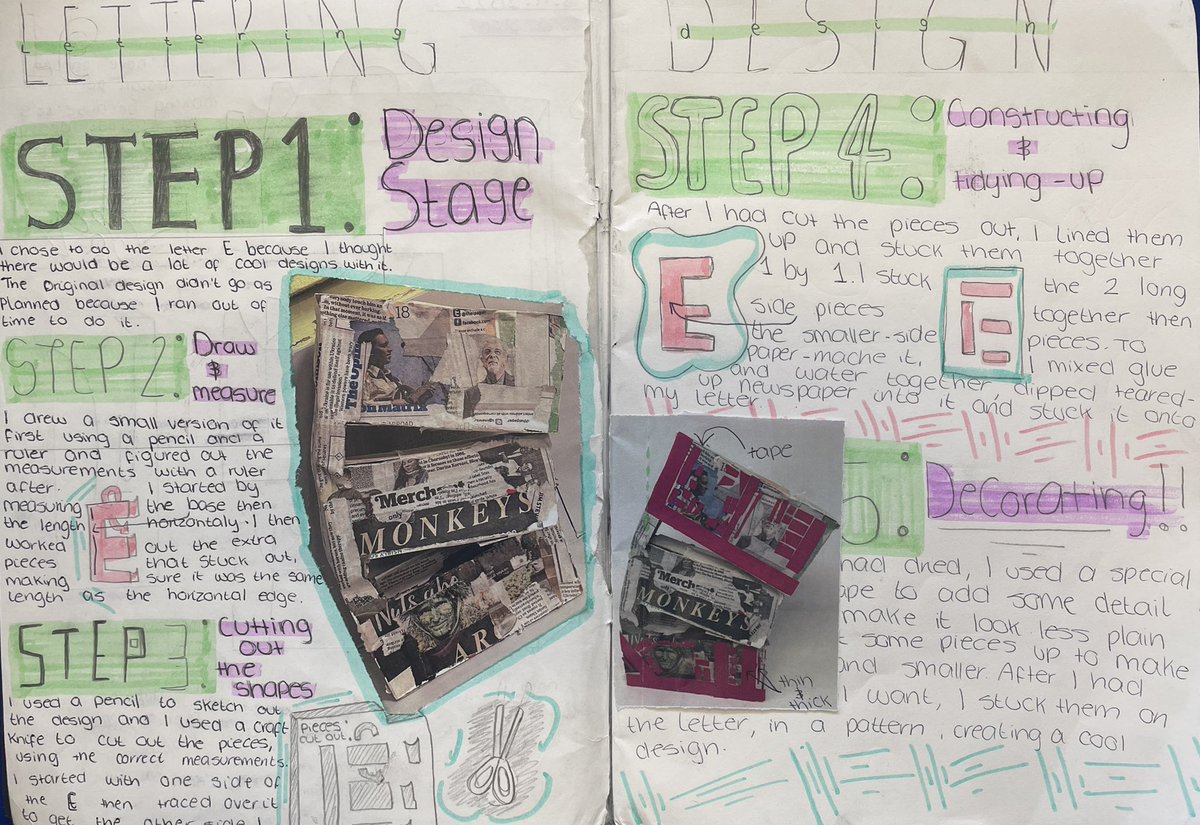 LETTERING
lettering
STEP 1:
Design
Stage
I chose to do the letter E because I thought
there would be a lot of cool designs with it.
The original design didn't go as
Planned because I ran out of
time to do it.
STEP 2:
Draw
&
measure
I drew a small version of it
first using a pencil and a
ruler and figured out the
measurements with a ruler
after. I started by
measuring the base then
the length horizontaly. I then
worked out the extra
pieces that stuck out,
making sure it was the same
length as the horizontal edge.
STEP 3:
Cutting
out
the
shapes
I used a pencil to sketch out
the design and I used a craft
knife to cut out the pieces,
using the correct measurements.
I started with one side of
the E then traced over it
to get the other side. I
Pieces
cut out
18
Merch
only
MONKEYS
AR
DESIGN
design
STEP 4:
Constructing
&
tidying-up
After I had cut the pieces out, I lined them
up and stuck them together
1 by 1. I stuck the 2 long
side pieces together then
the smaller-side pieces. To
paper-mache it, I mixed glue
and water together, dipped teared-
up newspaper into it and stuck it onto
my letter.
tape
Merch
MONKEYS
thin
&
thick
5:
Decorating!!
had dried, I used a special
ape to add some detail
make it look less plain
t some pieces up to make
and smaller. After I had
I want, I stuck them on
the letter, in a pattern, creating a cool
design.